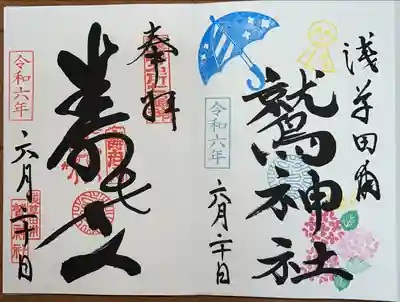 浅草田甫
鷲神社
令和六年
六月二十日
奉拝
寿老人
令和六年
六月二十日